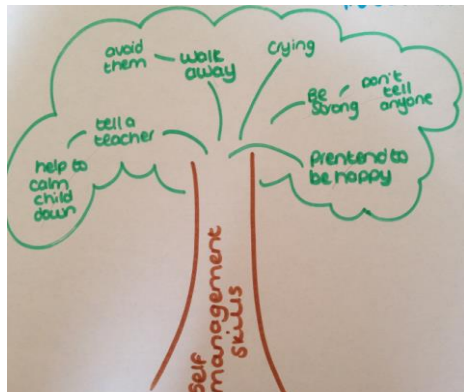 avoid
them
walk
away
crying
Be
strong
Don't
tell
anyone
tell a
teacher
help to
calm
child
down
Prentend to
be happy
self
management
skills